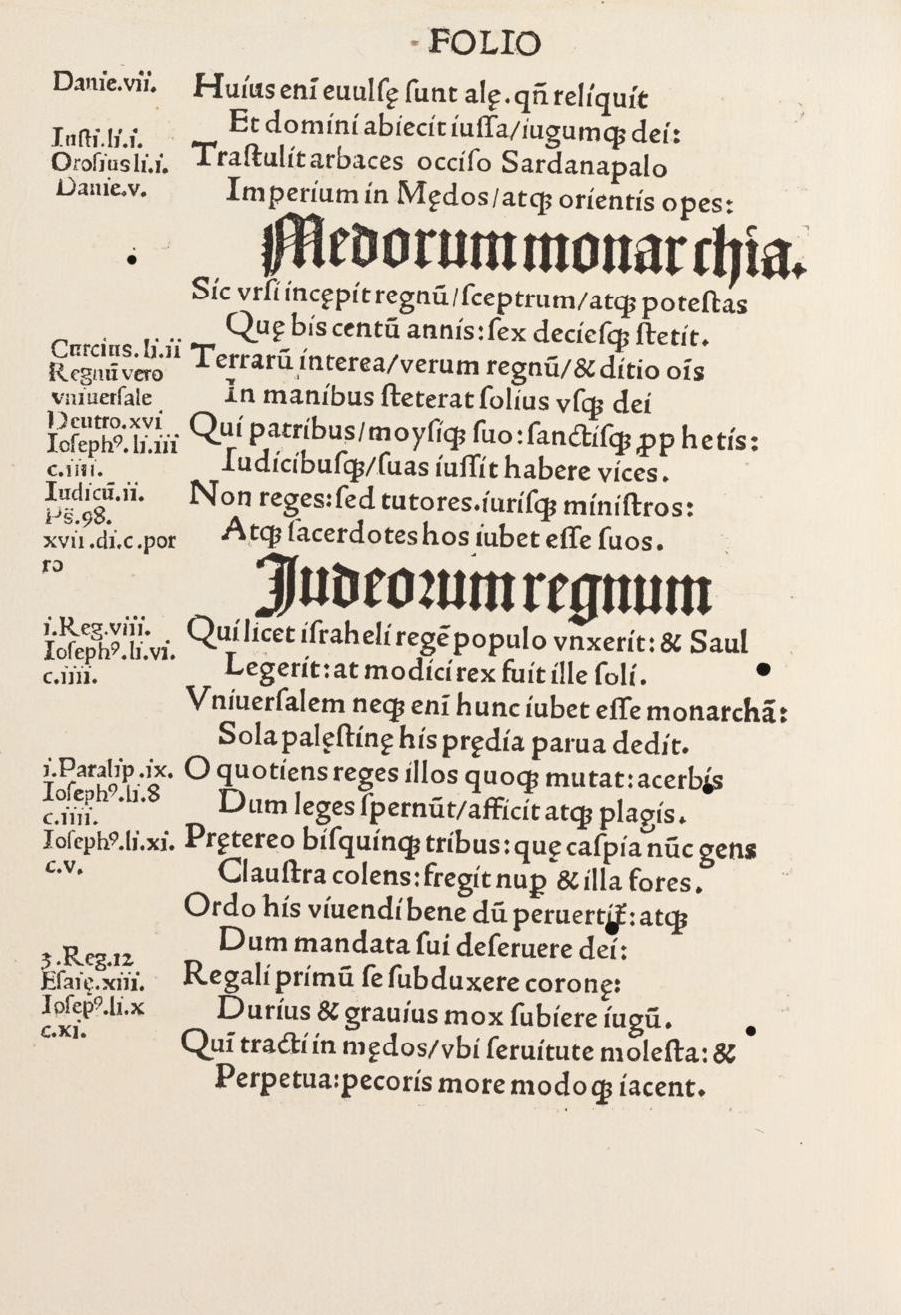 FOLIO
Danie.vii.
Huius enī euulſę ſunt alę.qn̄ reliquit
Et domini abiecit iuſſa/iugumqꝫ dei:
Inſti.li.i.
Oroſius li.i.
Traſtulit arbaces occiſo Sardanapalo
Danie.v.
Imperium in Mędos/atqꝫ orientis opes:
Medorum monarchia.
Sic vrſi incępit regnū/ſceptrum/atqꝫ poteſtas
Quę bis centū annis:ſex decieſqꝫ ſtetit.
Curcius.li.ii
Terrarū interea/verum regnū/& ditio oīs
Regnū vero
vniuerſale
In manibus ſteterat ſolius vſqꝫ dei
Deutro.xvi
Ioſephꝰ.li.iii
Qui patribus/moyſiqꝫ ſuo:ſanctiſqꝫ ꝓphetis:
c.iiii.
Iudicibuſqꝫ/ſuas iuſſit habere vices.
Iudicū.ii.
Non reges:ſed tutores.iuriſqꝫ miniſtros:
Ps̄.98.
xvii.di.c.por
ro
Atqꝫ ſacerdotes hos iubet eſſe ſuos.
Judeoꝛum regnum
i.Reg.viii.
Qui licet iſraheli regē populo vnxerit:& Saul
Ioſephꝰ.li.vi.
c.iiii.
Legerit:at modici rex fuit ille ſoli.
Vniuerſalem neqꝫ enī hunc iubet eſſe monarchā:
Sola paleſtinę his prędia parua dedit.
i.Paralip.ix.
O quotiens reges illos quoqꝫ mutat:acerbis
Ioſephꝰ.li.8
c.iiii.
Dum leges ſpernūt/afficit atqꝫ plagis.
Ioſephꝰ.li.xi.
Prętereo biſquinqꝫ tribus:quę caſpia nūc gens
c.v.
Clauſtra colens:fregit nuꝑ & illa fores.
Ordo his viuendi bene dū peruertit:atqꝫ
Dum mandata ſui deſeruere dei:
3.Reg.12
Eſaię.xiii.
Regali primū ſe ſubduxere coronę:
Ioſepꝰ.li.x
c.xi.
Durius & grauius mox ſubiere iugū.
Qui tracti in mędos/vbi ſeruitute moleſta:&
Perpetua:pecoris more modoqꝫ iacent.